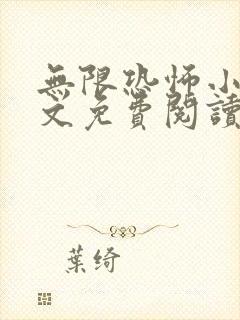 無限恐怖小
文免費閱讀
葉綺